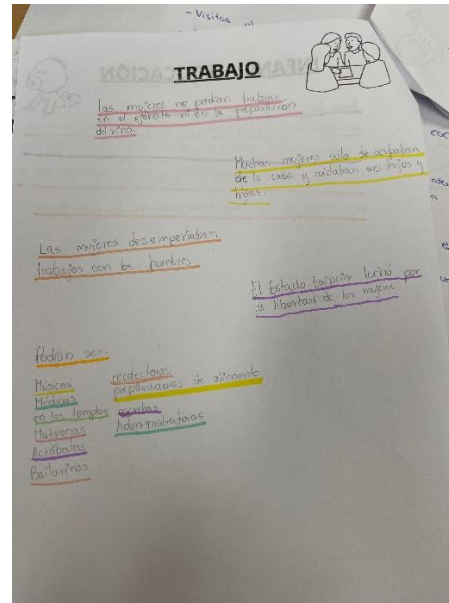 - Visitas al
TRABAJO
Las mujeres no podían trabajar
en el ejército ni en la preparación
del vino.
Muchas mujeres solo se ocupaban
de la casa y cuidaban sus hijos y
hijas.
Las mujeres desempeñaban
trabajos con los hombres
El Estado Egipcio luchó por
la libertad de las mujeres
Podían ser:
Músicas
Médicas
en los templos
Matronas
Acróbatas
Bailarinas
recolectoras
preparadoras de alimento
escribas
Administrativas